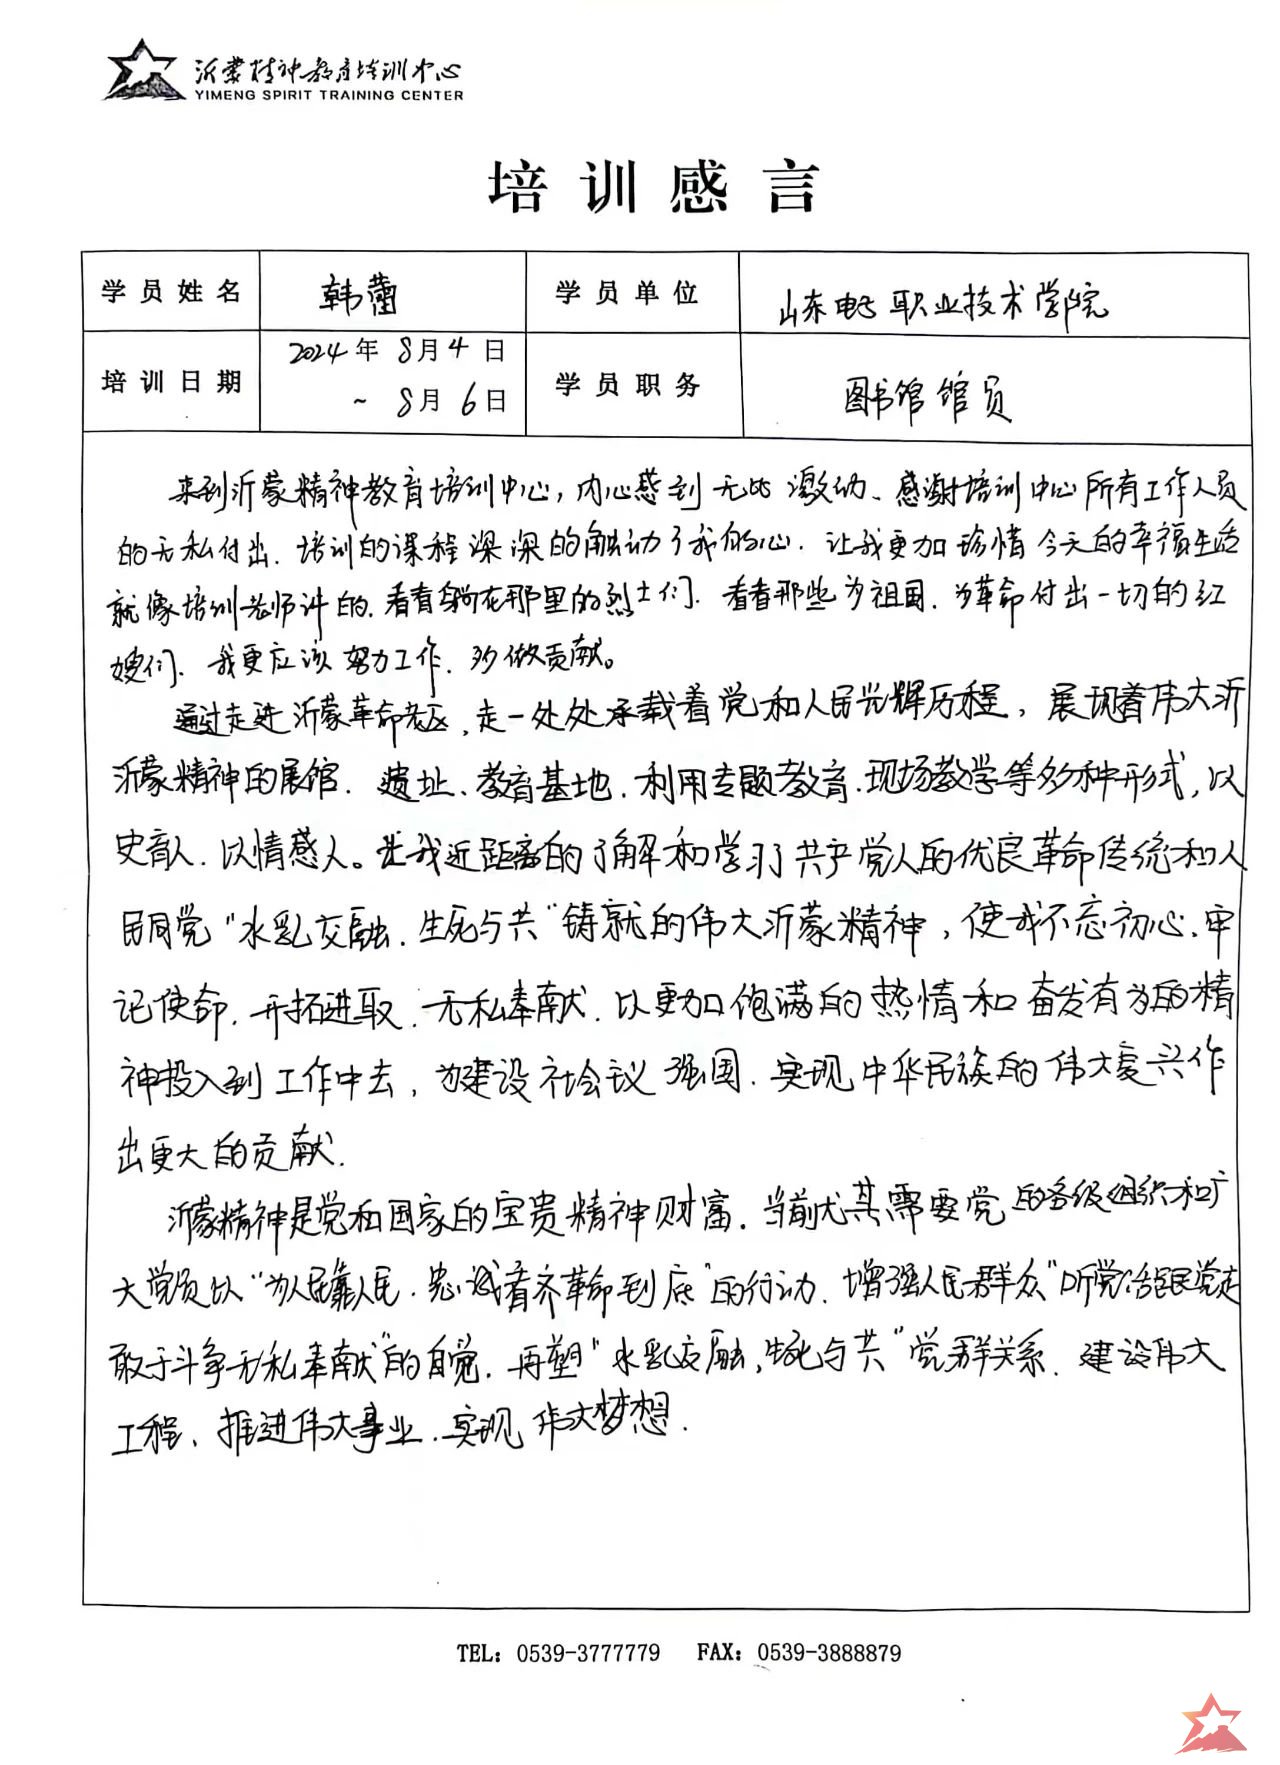 沂蒙精神教育培训中心
YIMENG SPIRIT TRAINING CENTER
培训感言
学员姓名 韩蕾 学员单位 山东电子职业技术学院
培训日期 2024年8月4日 ~ 8月6日 学员职务 图书馆馆员
来到沂蒙精神教育培训中心,内心感到无比激动、感谢培训中心所有工作人员
的无私付出.培训的课程深深的触动了我的心.让我更加珍惜今天的幸福生活
就像培训老师讲的.看看躺在那里的烈士们.看看那些为祖国.为革命付出一切的红
嫂们.我更应该努力工作.多做贡献。
通过走进沂蒙革命老区,走一处处承载着党和人民光辉历程,展现着伟大沂
沂蒙精神的展馆.遗址、教育基地.利用专题教育.现场教学等多种形式,以
史育人.以情感人。让我近距离的了解和学习了共产党人的优良革命传统和人
民同党"水乳交融.生死与共"铸就的伟大沂蒙精神,使我不忘初心.牢
记使命.开拓进取.无私奉献.以更加饱满的热情和奋发有为的精
神投入到工作中去,为建设社会议强国.实现中华民族的伟大复兴作
出更大的贡献.
沂蒙精神是党和国家的宝贵精神财富.当前尤其需要党的各级组织和广
大党员以"为人民靠人民.忠诚看齐革命到底"的行动.增强人民群众"听党话跟党走
敢于斗争无私奉献"的自觉.再塑"水乳交融,生死与共"党群关系.建设伟大
工程、推进伟大事业.实现伟大梦想.
TEL: 0539-3777779 FAX: 0539-3888879